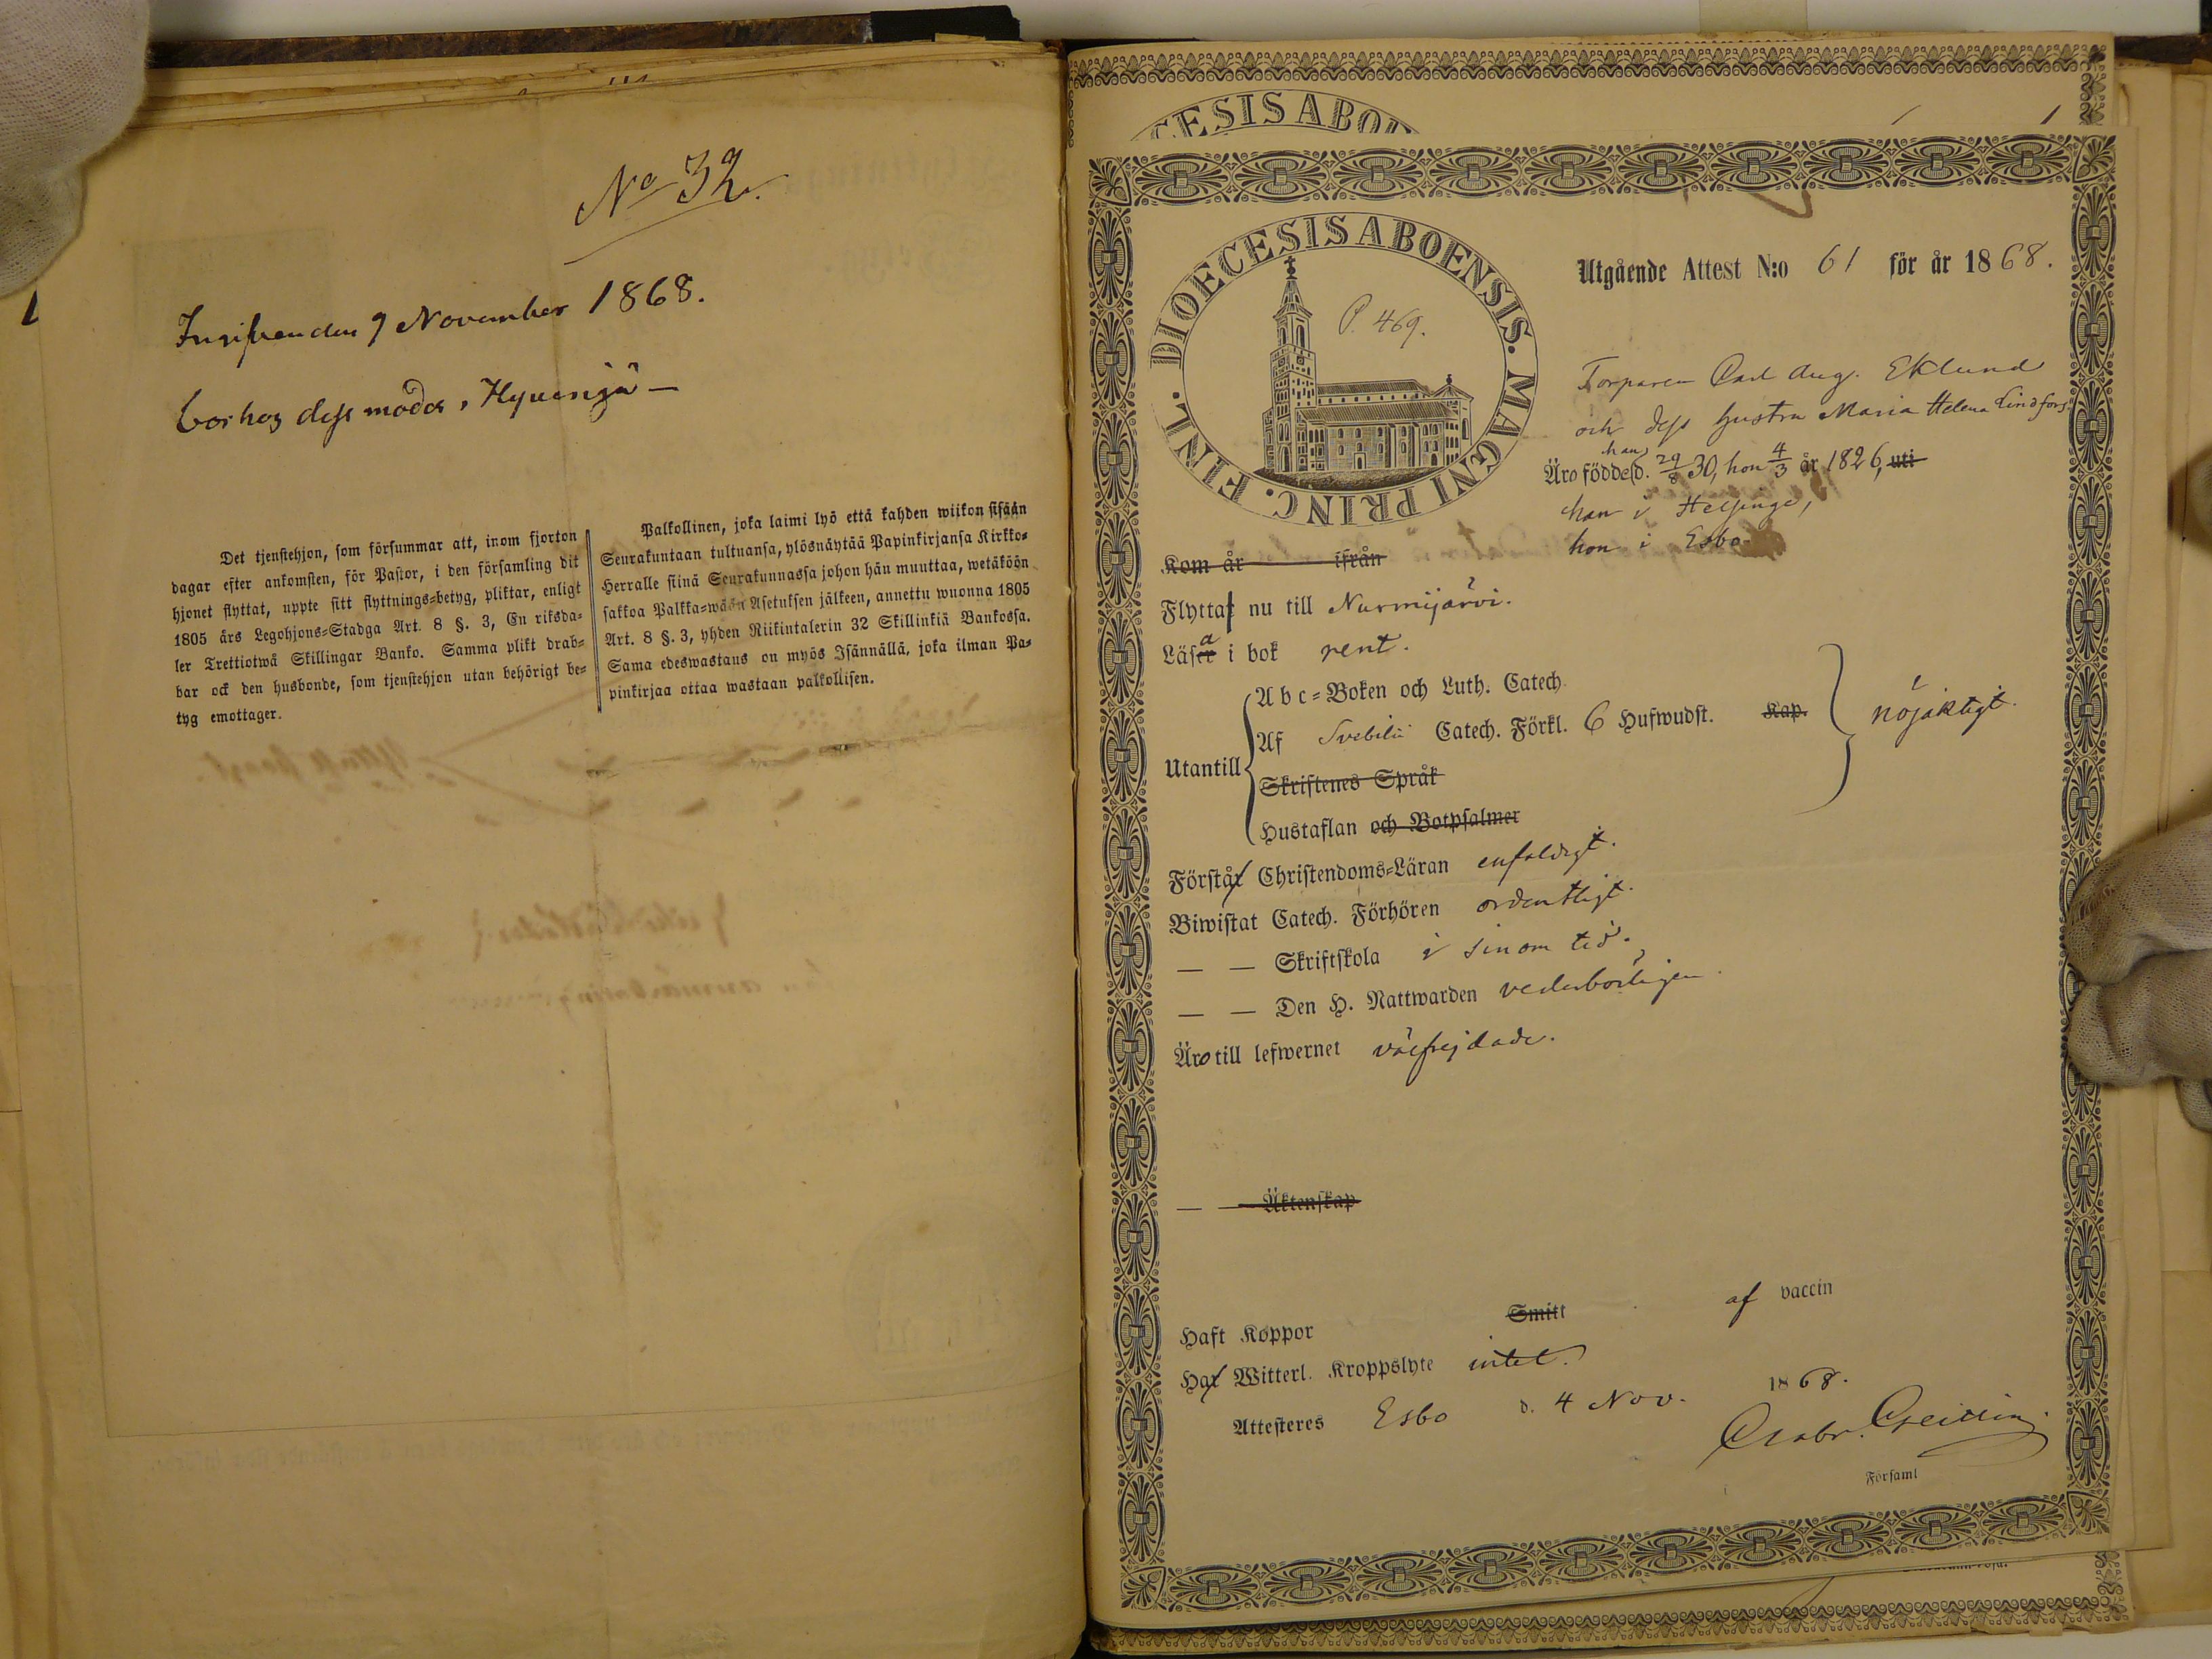 No 32.
Inskrifven den 9 November 1868.
bor hos dess moder, Hyvingä —
Det tjenstehjon, som försummar att, inom fjorton
dagar efter ankomsten, för Pastor, i den församling dit
hjonet flyttat, uppte sitt flyttnings=betyg, pliktar, enligt
1805 års Legohjons=Stadga Art. 8 §. 3, En riksda=
ler Trettiotwå Skillingar Banko. Samma plikt drab=
bar ock den husbonde, som tjenstehjon utan behörigt be=
tyg emottager.
Palkollinen, joka laimi lyö että kahden wiikon sisään
Seurakuntaan tultuansa, ylösnäytää Papinkirjansa Kirkko=
Herralle siinä Seurakunnassa johon hän muuttaa, wetäköön
sakkoa Palkka=wään Asetuksen jälkeen, annettu wuonna 1805
Art. 8 §. 3, yhden Riikintalerin 32 Skillinkiä Bankossa.
Sama edeswastaus on myös Isännällä, joka ilman Pa=
pinkirjaa ottaa wastaan palkollisen.
CESIS ABO
DIOECESIS ABOENSIS. MAGNI PRINC. FINL.
P. 469.
Utgående Attest N:o 61 för år 1868.
Torparen Carl Aug. Eklund
och dess hustru Maria Helena Lindfors
han
Äro födde d. 29/8 30, hon 4/3 år 1826, uti
han i Helsinge,
hon i Esbo
Kom år ifrån
Flytta nu till Nurmijärvi.
Läsa i bok rent.
Utantill
Abc=Boken och Luth. Catech.
Af Svebilii Catech. Förkl. 6 Hufwudst. Kap.
Skriftenes Språk
Hustaflan och Botpsalmer
nöjaktigt.
Förstår Christendoms=Läran enfaldigt.
Biwistat Catech. Förhören ordentligt.
— — Skriftskola i sinom tid.
— — Den H. Nattwarden vederbörligen.
Äro till lefwernet välfrejdade.
— — Äktenskap
Haft Koppor Smitt af vaccin
Har Witterl. Kroppslyte intet.
Attesteres Esbo d. 4 Nov. 1868.
Församl